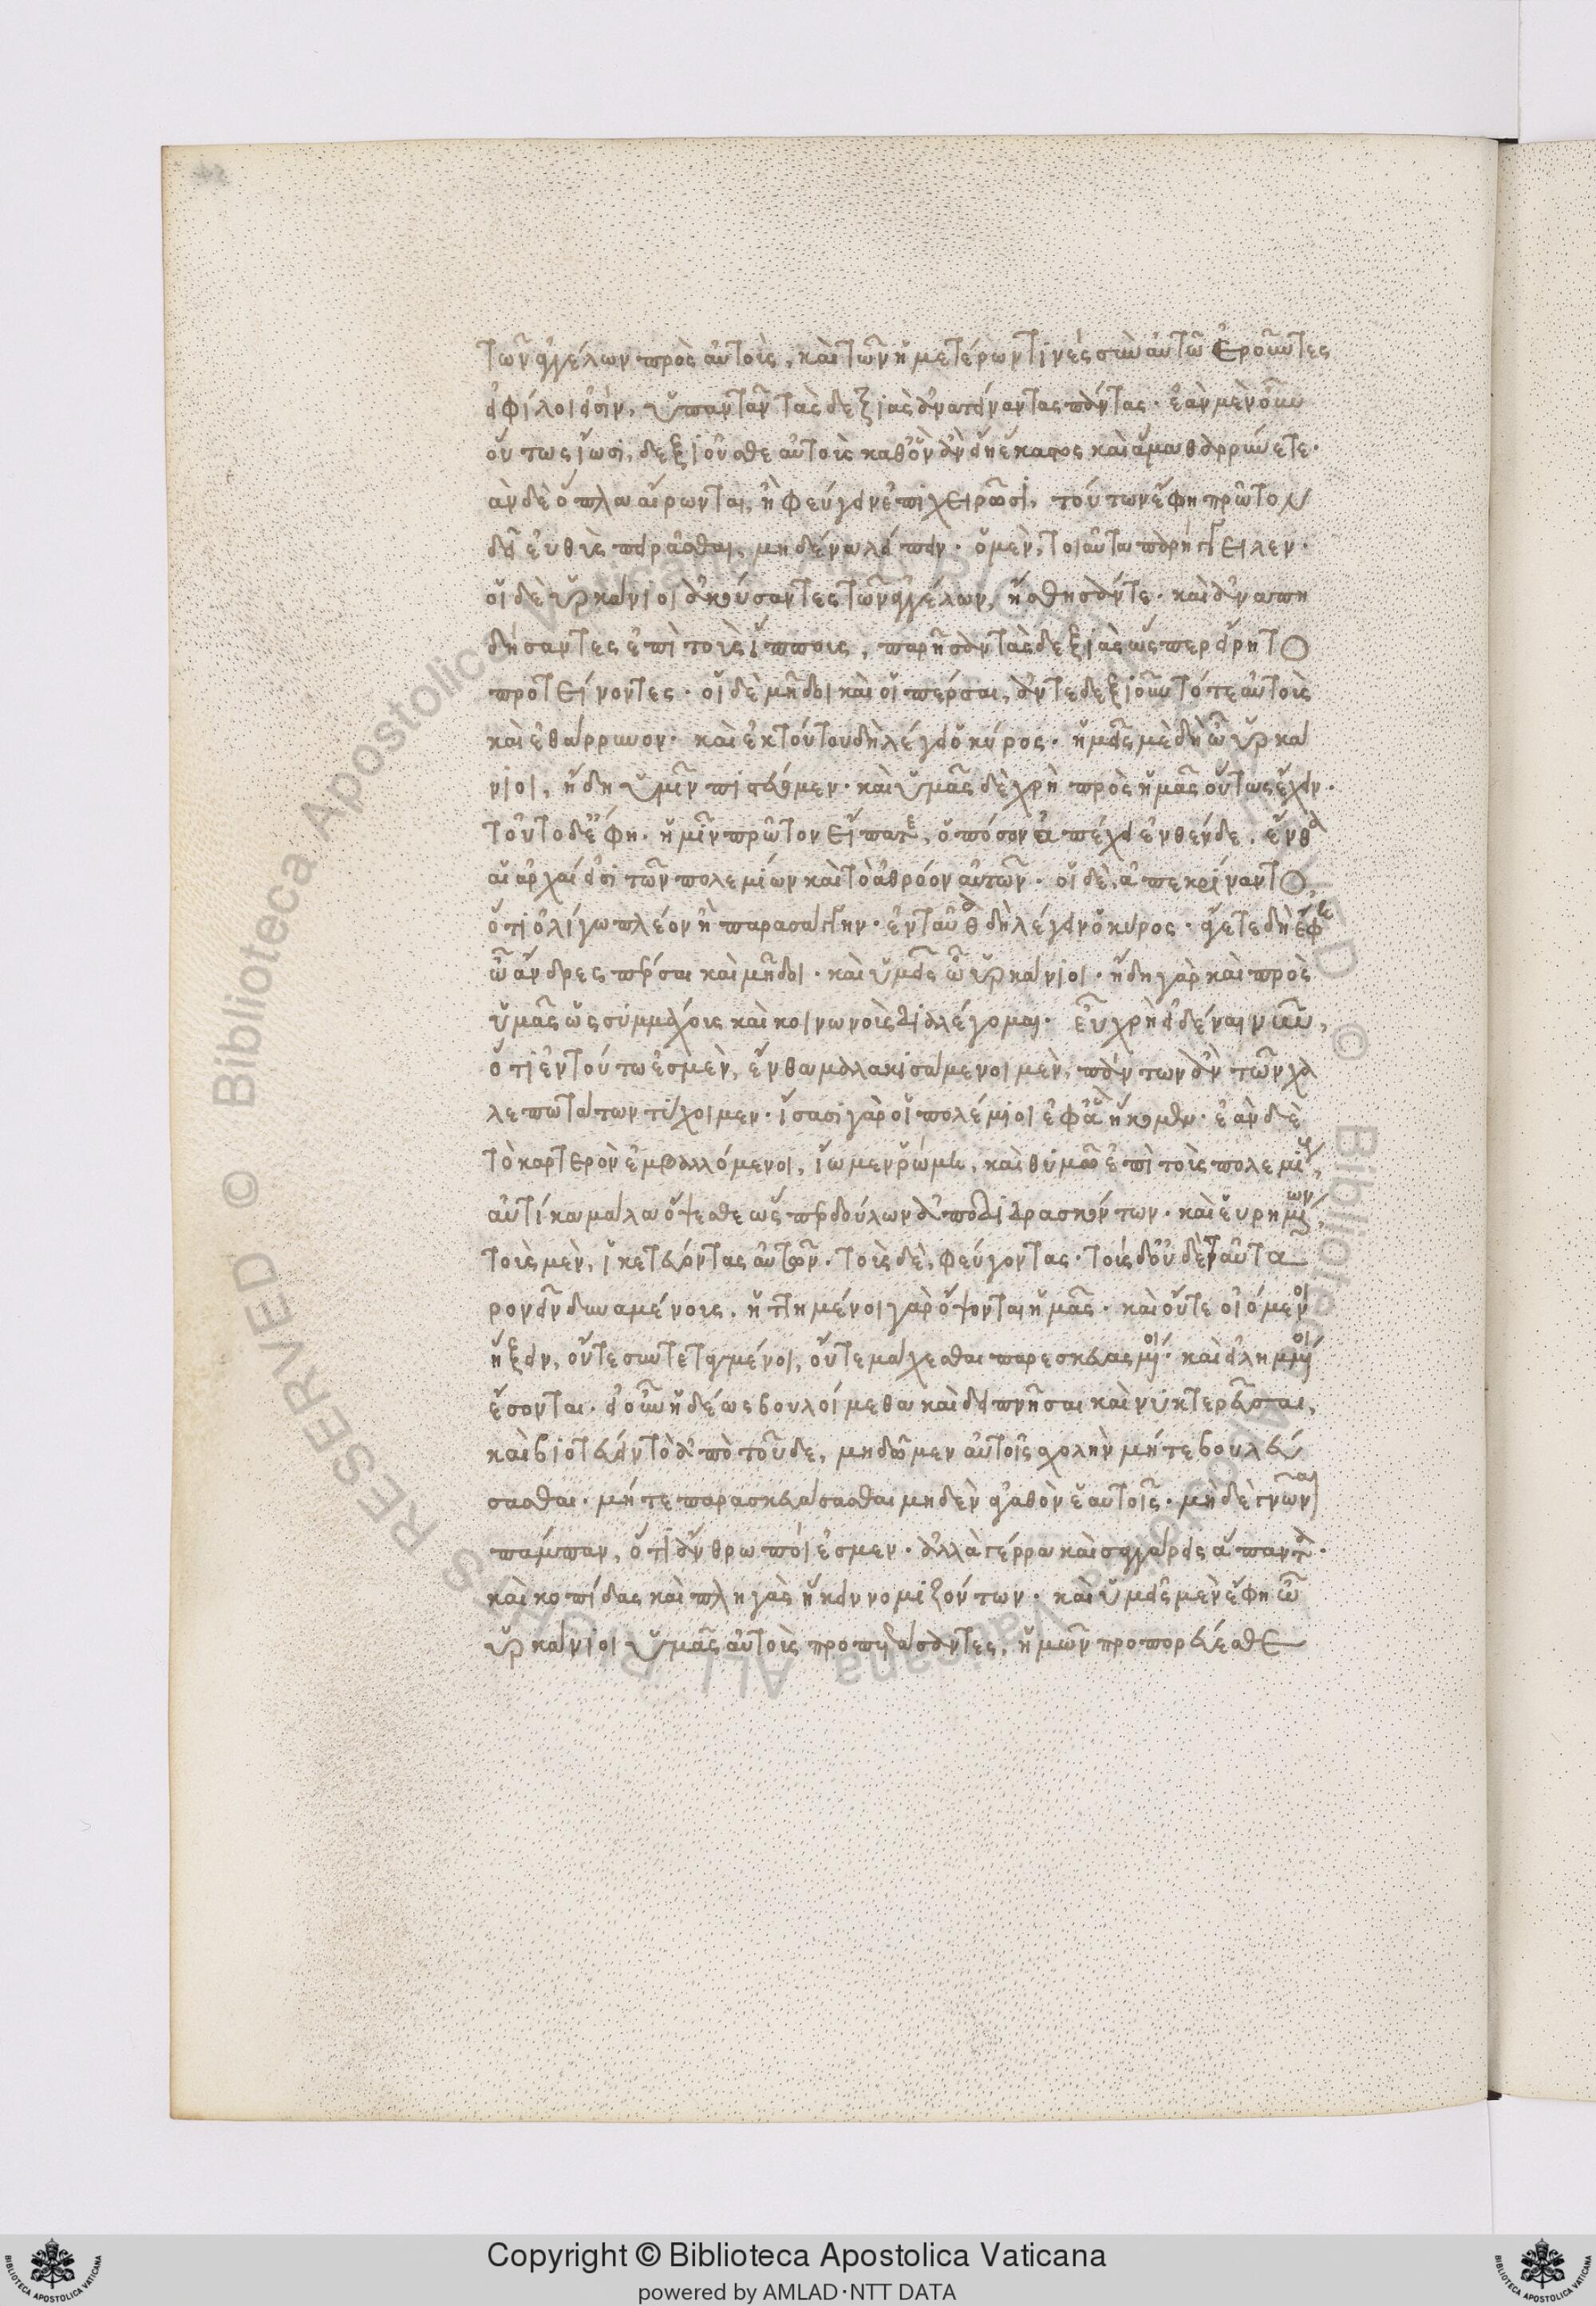 τῶν ἀγγέλων πρὸς αὐτοὺς, καὶ τῶν ἡμετέρων τινὲς σὺν αὐτῶ ἐροῦντες
εἰ φίλοι εἰσὶν, ὑπαντᾶν τὰς δεξιὰς ἀνατείναντας πάντας. ἐὰν μὲν οὖν
οὕτως ἴωσι, δεξιοῦσθε αὐτοὺς καθ' ὃν ἂν εἴη ἕκαστος καὶ ἅμα θαρρύνετε.
ἂν δὲ ὅπλα αἴρωνται, ἢ φεύγειν ἐπιχειρῶσι, τούτων ἔφη πρῶτον
δεῖ εὐθὺς πειρᾶσθαι, μηδένα λιπεῖν. ὁ μὲν, τοιαῦτα παρήγγειλεν.
οἱ δὲ ὑρκάνιοι ἀκούσαντες τῶν ἀγγέλων, ἥσθησάν τε. καὶ ἀναπη
δήσαντες ἐπὶ τοὺς ἵππους, παρῆσαν τὰς δεξιὰς ὥσπερ εἴρητο
προτείνοντες. οἱ δὲ μῆδοι καὶ οἱ πέρσαι, ἀντεδεξιοῦντό τε αὐτοὺς
καὶ ἐθάρρυνον. καὶ ἐκ τούτου δὴ λέγει ὁ κύρος. ἡμεῖς μὲ δὴ ὦ ὑρκά
νιοι, ἤδη ὑμῖν πιστεύομεν. καὶ ὑμᾶς δὲ χρὴ πρὸς ἡμᾶς οὕτως ἔχειν.
τοῦτο δ' ἔφη. ἡμῖν πρῶτον εἴπατε, ὁπόσον ἀπέχει ἐνθένδε. ἔνθα
αἱ ἀρχαί εἰσι τῶν πολεμίων καὶ τὸ ἀθρόον αὐτῶν. οἱ δὲ, ἀπεκρίναντο
ὅτι ὀλίγω πλέον ἢ παρασάγγην. ἐνταῦθα δὴ λέγειν ὁ κύρος. ἄγετε δὴ ἔφη
ὦ ἄνδρες πέρσαι καὶ μῆδοι. καὶ ὑμεῖς ὦ ὑρκάνιοι. ἤδη γὰρ καὶ πρὸς
ὑμᾶς ὡς συμμάχους καὶ κοινωνοὺς διαλέγομαι. εὖ χρὴ εἰδέναι νῦν,
ὅτι ἐν τούτω ἐσμὲν, ἔνθα μαλακισάμενοι μὲν, πάντων ἂν τῶν χα
λεπωτάτων τύχοιμεν. ἴσασι γὰρ οἱ πολέμιοι ἐφ' ἃ ἥκομεν. ἐὰν δὲ
τὸ καρτερὸν ἐμβαλλόμενοι, ἴωμεν ῥώμη, καὶ θυμῶ ἐπὶ τοὺς πολεμίους,
αὐτίκα μάλα ὄψεσθε ὥσπερ δούλων ἀποδιδρασκόντων. καὶ εὑρημένων,
τοὺς μὲν, ἱκετεύοντας αὐτῶν. τοὺς δὲ, φεύγοντας. τοὺς δ' οὐδὲν ταῦτα
ρονεῖν δυναμένους. ἡττημένοι γὰρ ὄψονται ἡμᾶς. καὶ οὔτε οἰόμενοι
ἥξειν, οὔτε συντεταγμένοι, οὔτε μάχεσθαι παρεσκευασμένοι. καὶ εἰλημμένοι
ἔσονται. εἰ οὖν ἡδέως βουλοίμεθα καὶ δειπνῆσαι καὶ νυκτερεῦσαι,
καὶ βιοτεύειν τὸ ἀπὸ τοῦδε, μὴ δῶμεν αὐτοῖς σχολὴν μήτε βουλεύ
σασθαι. μήτε παρασκευάσασθαι μηδὲν ἀγαθὸν ἑαυτοῖς. μηδὲ γνῶναι
πάμπαν, ὅτι ἄνθρωποί ἐσμεν. ἀλλὰ γέρρα καὶ σαγάρεις ἅπαντα.
καὶ κοπίδας καὶ πληγὰς ἥκειν νομιζόντων. καὶ ὑμεῖς μὲν ἔφη ὦ
ὑρκάνιοι ὑμᾶς αὐτοὺς προπετάσαντες, ἡμῶν προπορεύεσθε
Copyright © Biblioteca Apostolica Vaticana
powered by AMLAD·NTT DATA